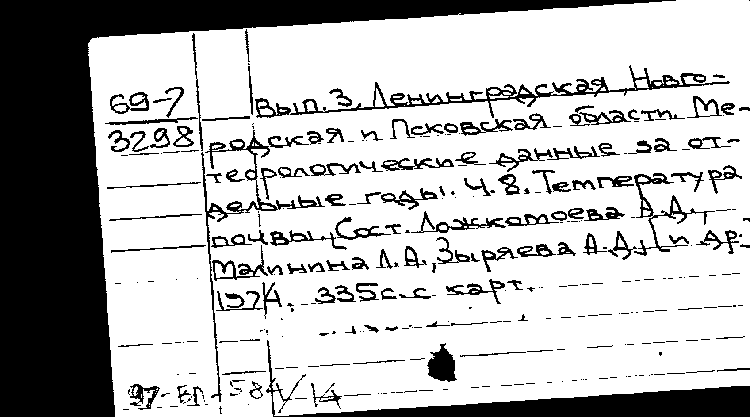 69-7
3298
Вып. 3. Ленинградская, Новго-
родская и Псковская области. Ме-
теорологические данные за от-
дельные годы. Ч. 8. Температура
почвы. [Сост. Ложкомоева А.Д.,
Малинина Л.А., Зыряева А.Д., [и др.
1974. 335с. с карт.
97-ВП-584/14